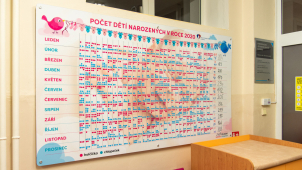 POČET DĚTÍ NAROZENÝCH V ROCE 2020
LEDEN
ÚNOR
BŘEZEN
DUBEN
KVĚTEN
ČERVEN
ČERVENEC
SRPEN
ZÁŘÍ
ŘÍJEN
LISTOPAD
PROSINEC